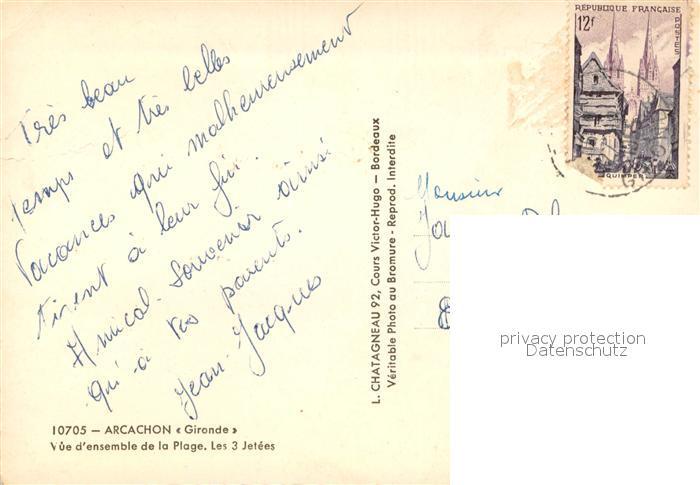 Très beau
temps et très belles
Vacances qui malheureusement
tirent à leur fin.
Amical Souvenir ainsi
qui à tes parents.
Jean-Jacques
10705 — ARCACHON « Gironde »
Vue d'ensemble de la Plage. Les 3 Jetées
L. CHATAGNEAU 92, Cours Victor-Hugo — Bordeaux
Véritable Photo au Bromure - Reprod. Interdite
RÉPUBLIQUE FRANÇAISE
12f
POSTES
QUIMPER
Monsieur
privacy protection
Datenschutz